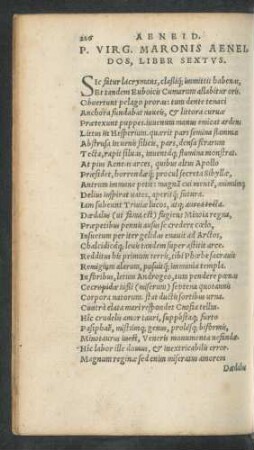 226 AENEID.
P. VIRG. MARONIS AENEI
DOS, LIBER SEXTVS.
SIc fatur lacrymans, classiq; immittit habenas,
Et tandem Euboicis Cumarum allabitur oris.
Obuertunt pelago proras: tum dente tenaci
Anchora fundabat naueis, & littora curuæ
Prætexunt puppes. iuuenum manus emicat ardens
Littus in Hesperium. quærit pars semina flammæ
Abstrusa in uenis silicis, pars, densa ferarum
Tecta, rapit siluas, inuentaq; flumina monstrat.
At pius Aeneas arces, quibus altus Apollo
Præsidet, horrendæq; procul secreta Sibyllæ,
Antrum immane petit: magnā cui mentē, animumq;
Delius inspirat uates, aperitq; futura.
Iam subeunt Triuiæ lucos, atq; aurea tecta.
Dædalus (ut fama est) fugiens Minoia regna,
Præpetibus pennis ausus se credere cœlo,
Insuetum per iter gelidas enauit ad Arctos,
Chalcidicáq; leuis tandem super astitit arce.
Redditus his primum terris, tibi Phœbe sacrauit
Remigium alarum, posuitq; immania templa.
In foribus, letum Androgeo, tum pendere pœnas
Cecropidæ iussi (miserum) septena quotannis
Corpora natorum. stat ductis sortibus urna.
Contrà elata mari respondet Cnosia tellus.
Hîc crudelis amor tauri, suppostaq; furto
Pasiphaë, mistumq; genus, prolesq; biformis,
Minotaurus inest, Veneris monumenta nefandæ.
Hîc labor ille domus, & inextricabilis error.
Magnum reginæ sed enim miseratus amorem
Dædalus